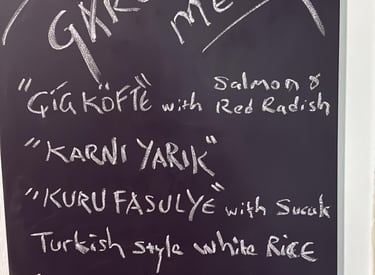 "ÇİĞ KÖFTE" with Salmon & Red Radish
"KARNI YARIK"
"KURU FASULYE" with Sucuk
Turkish style white RiCE